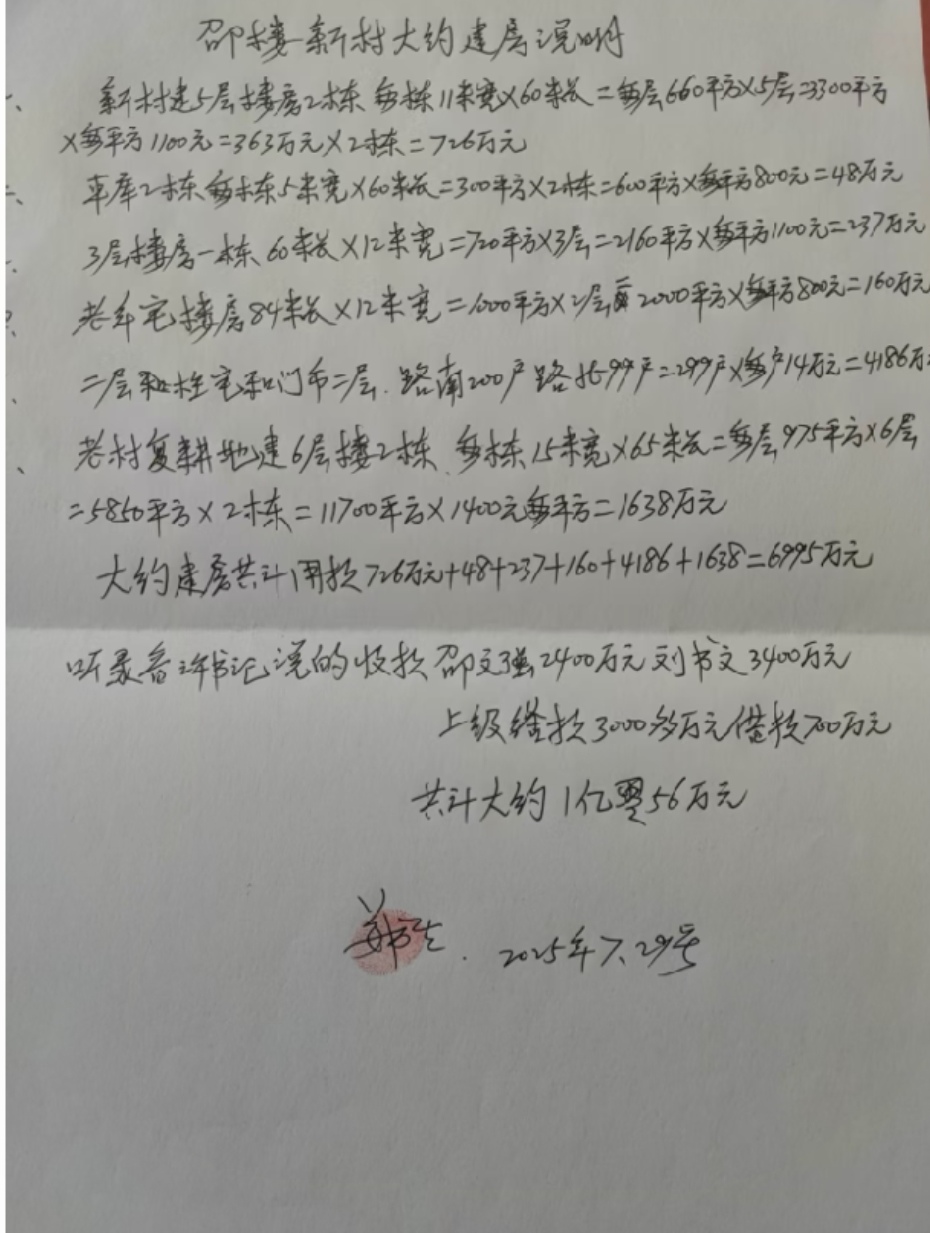 邵楼新村大约建房说明
一、新村建5层楼房2栋 每栋11米宽×60米长=每层660平方×5层=3300平方
×每平方1100元=363万元×2栋=726万元
二、车库2栋每栋5米宽×60米长=300平方×2栋=600平方×每平方800元=48万元
3层楼房一栋 60米长×12米宽=720平方×3层=2160平方×每平方1100元=237万元
老年宅楼房84米长×12米宽=1000平方×2层 2000平方×每平方800元=160万元
二层和住宅和门市二层.路南200户路北99户=299户×每户14万元=4186万
老村复耕地建6层楼2栋.每栋15米宽×65米长=每层975平方×6层
=5850平方×2栋=11700平方×1400元每平方=1638万元
大约建房共计用款726万元+48+237+160+4186+1638=6995万元
听录音 书记说的收款邵文强2400万元刘书文3400万元
上级 款3000多万元借款700万元
共计大约1亿零56万元
2025年7.29号